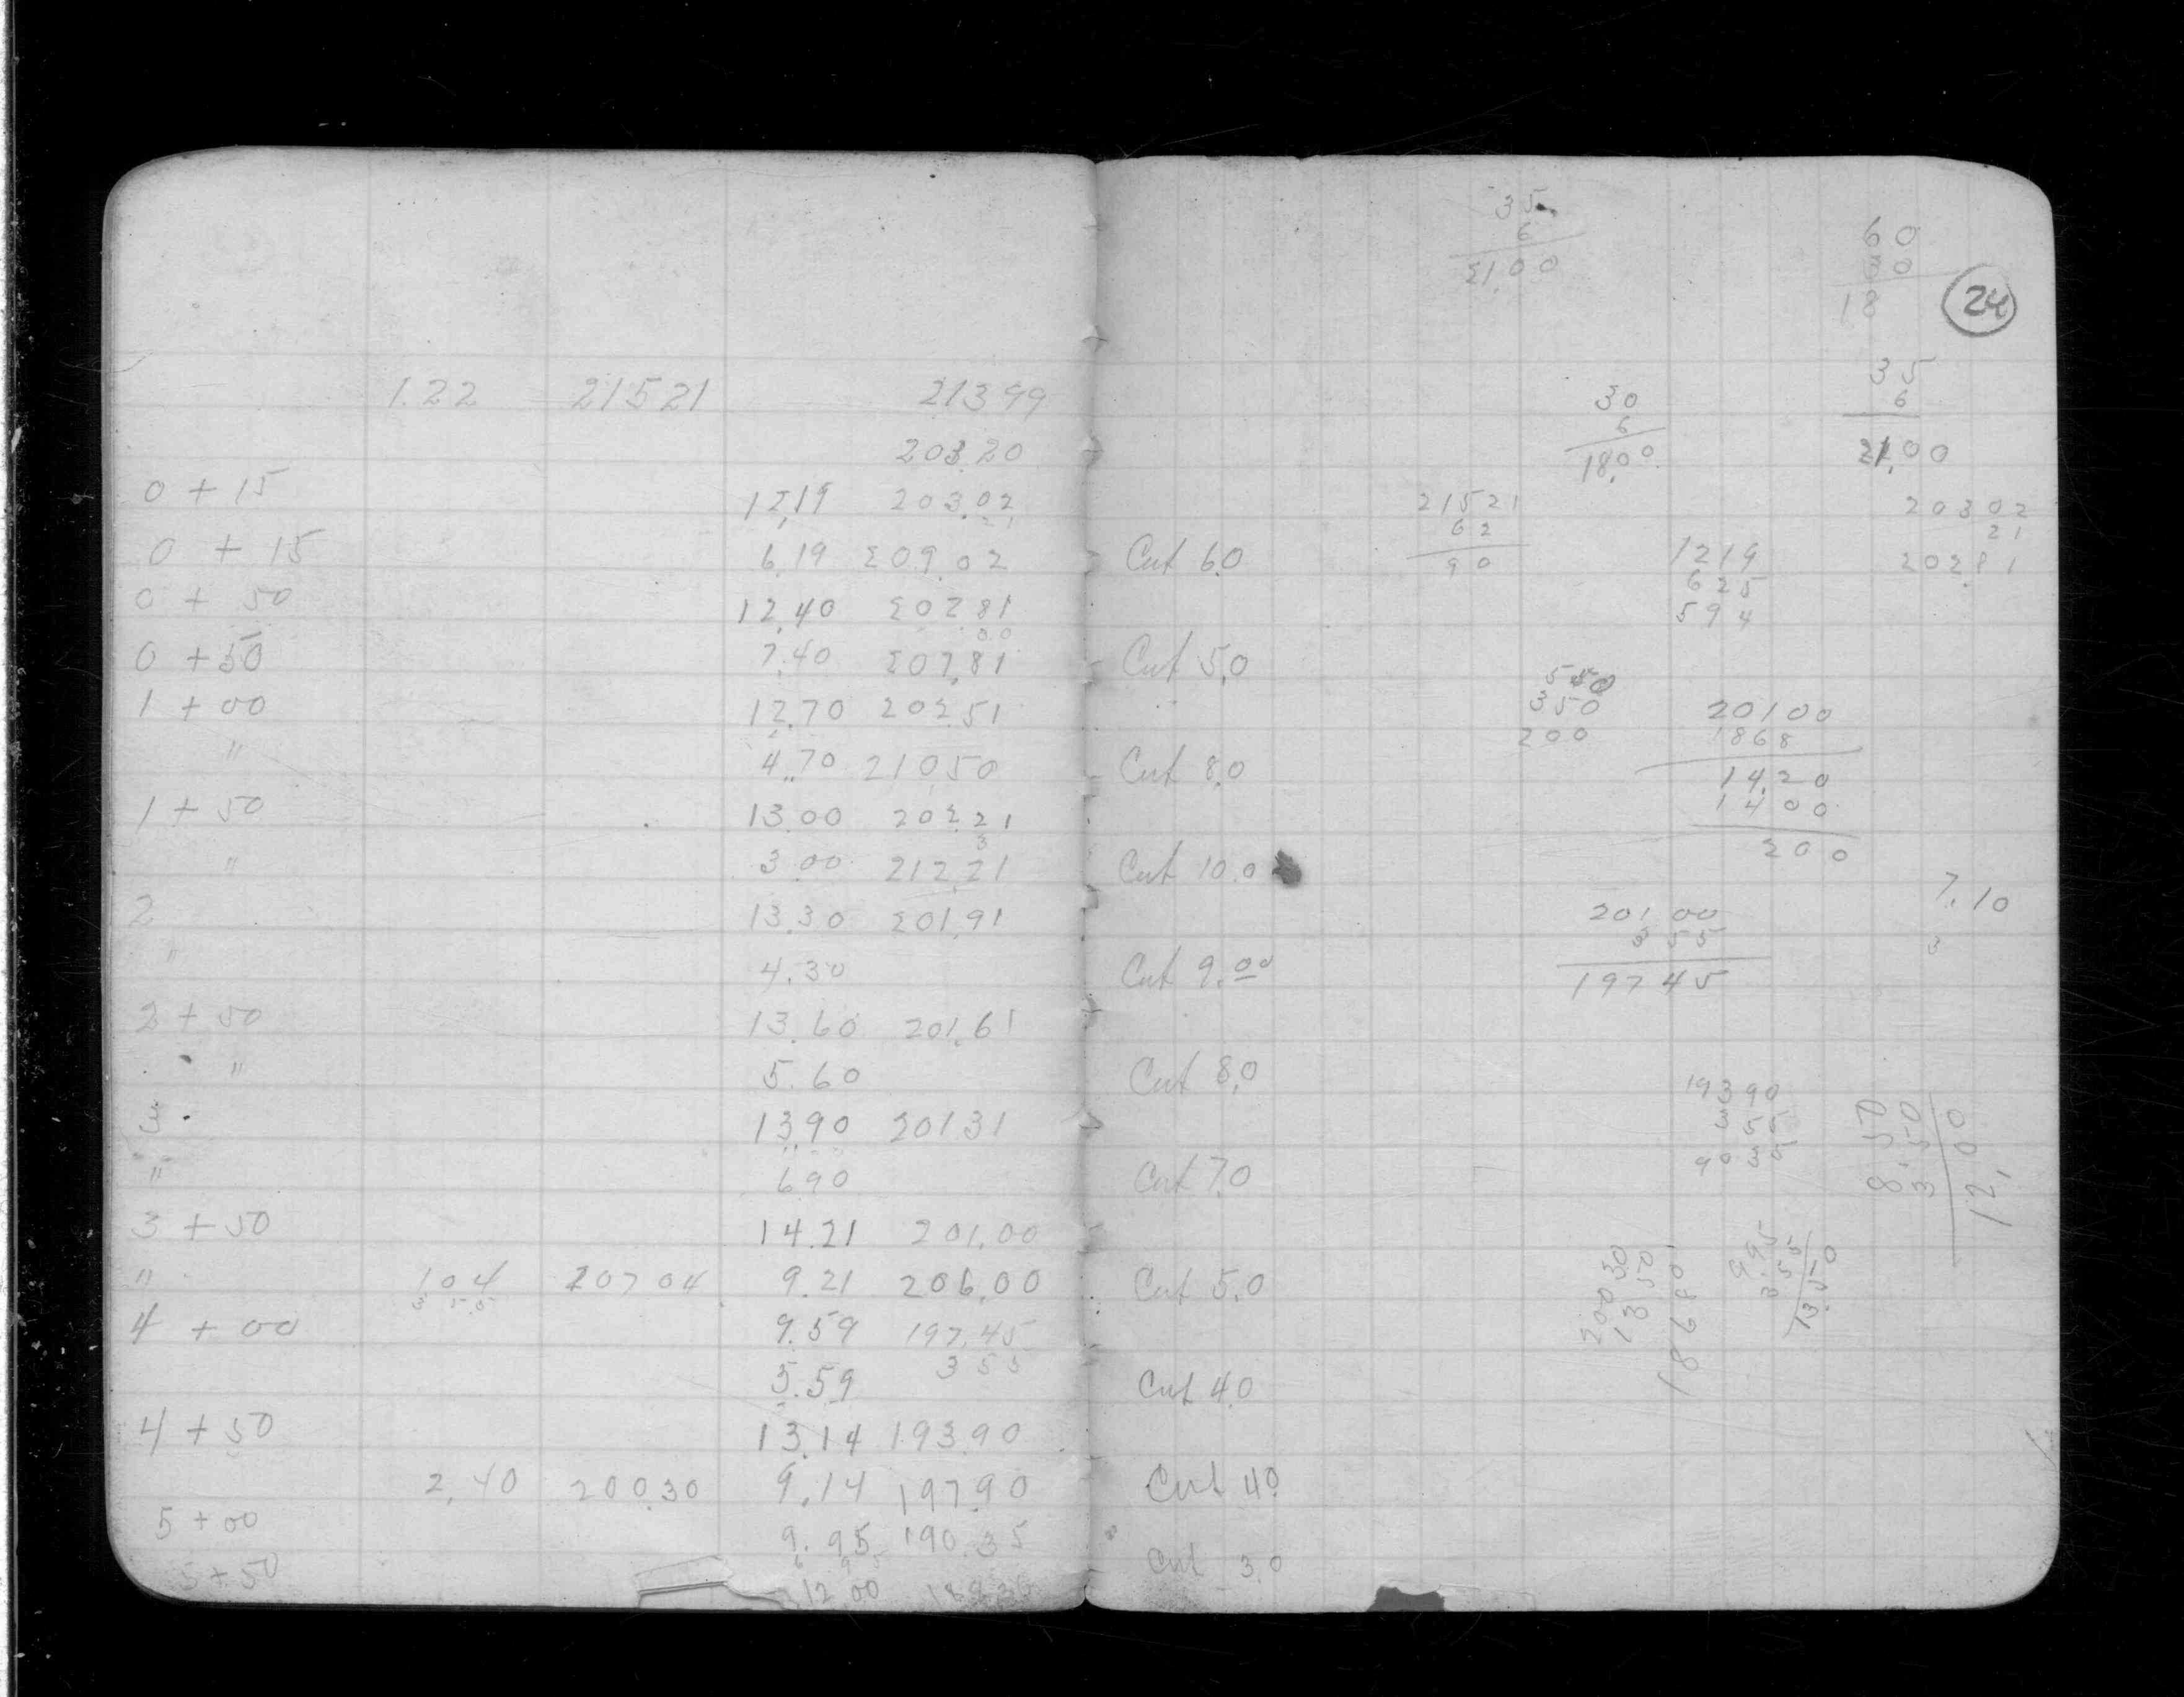 1.22 21521 21399
203.20
0 + 15 12,19 203.02
0 + 15 6.19 209.02 Cut 6.0
0 + 50 12.40 202.81
0 + 50 7.40 207.81 Cut 5.0
1 + 00 12.70 202.51
" 4.70 210.50 Cut 8.0
1 + 50 13.00 202.21
" 3.00 212.21 Cut 10.0
2 13.30 201.91
" 4.30 Cut 9.00
2 + 50 13.60 201.61
" 5.60 Cut 8.0
3. 13.90 20131
" 690 Cut 7.0
3 + 50 14.21 201.00
" 104 20704 9.21 206.00 Cut 5.0
3 5.5
4 + 00 9.59 197.45
355
5.59 Cut 4.0
4 + 50 13.14 193.90
2.40 200.30 9.14 197.90 Cut 4.0
5 + 00 9.95 190.35
5 + 50 12.00 Cut 3.0
35
6
21.00
60
30
18
24
30
6
18.00
35
6
21.00
21521
62
90
1219
625
594
20302
21
20281
550
350
200
20100
1868
14.20
1400
200
201 00
3 55
197 45
7.10
3
19390
355
9035
8.50
3.50
12.00
200 30
13 50
186 80
9.95
3.55
13.50